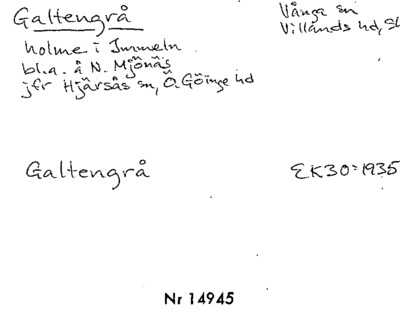 Galtengrå
Vånga sn
Villands hd, Sk
holme i Immeln
bl.a. å N. Mjönäs
jfr Hjärsås sn, Ö. Göinge hd
Galtengrå
EK30:1935
Nr 14945